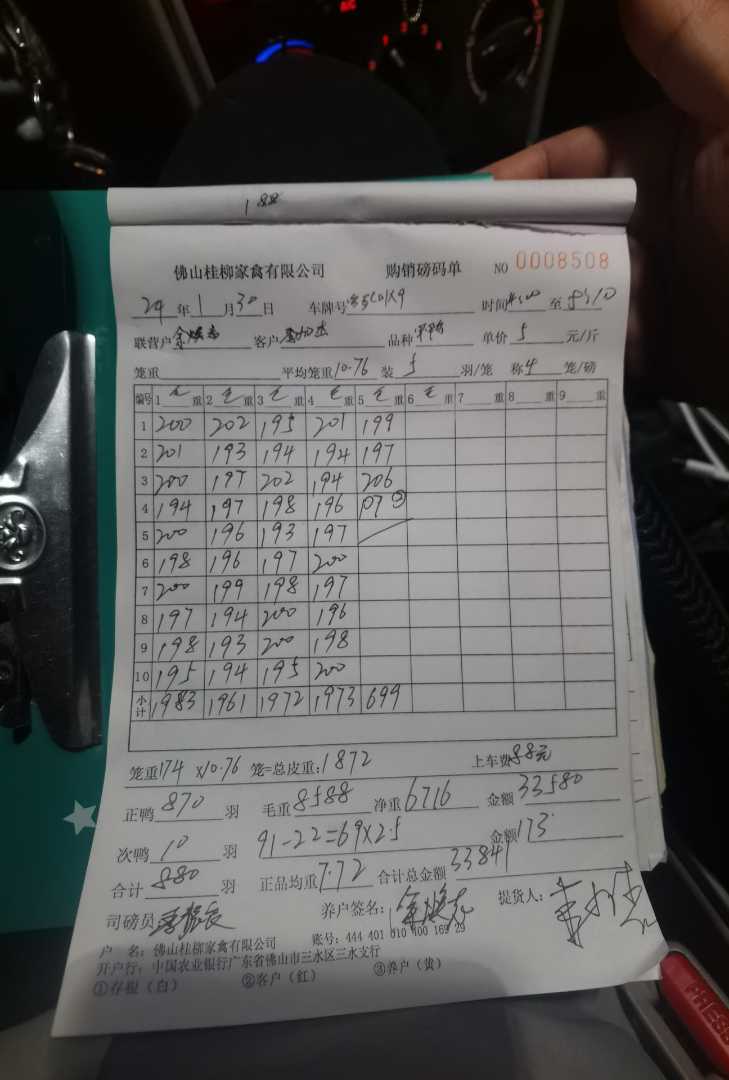 188
佛山桂柳家禽有限公司 购销磅码单 NO 0008508
24 年 1 月 30 日 车牌号 时间 至 5:10
联营户 客户 品种 单价 5 元/斤
笼重 平均笼重 10.76 装 5 羽/笼 称 4 笼/磅
编号 1 毛 重 2 毛 重 3 毛 重 4 毛 重 5 毛 重 6 毛 重 7 重 8 重 9 重
1 200 202 195 201 199
2 201 193 194 194 197
3 200 197 202 194 206
4 194 197 198 196 97 ②
5 200 196 193 197
6 198 196 197 200
7 200 199 198 197
8 197 194 200 196
9 198 193 200 198
10 195 194 195 200
小计 1983 1961 1972 1973 699
笼重 174 x10.76 笼=总皮重: 1872 上车费 88元
正鸭 870 羽 毛重 8588 净重 6716 金额 33580
次鸭 10 羽 91-22=69x2.5 金额 173
合计 880 羽 正品均重 7.72 合计总金额 33841
司磅员 养户签名: 提货人:
户 名: 佛山桂柳家禽有限公司 账号: 444 401 010 400 169 29
开户行: 中国农业银行广东省佛山市三水区三水支行
①存根(白) ②客户(红) ③养户(黄)